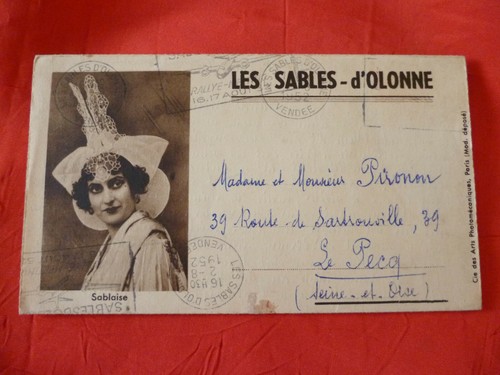 LES SABLES-d'OLONNE
RALLYE-
16.17 AOUT
LES SABLES D'OL
1952
VENDEE
Madame et Monsieur Pironon
39 Route de Sartrouville, 39
Le Pecq
(Seine-et-Oise)
Sablaise
LES SABLES D'OL
16 H30
2-8
1952
VENDEE
Cie des Arts Photomécaniques, Paris (Mod. déposé)